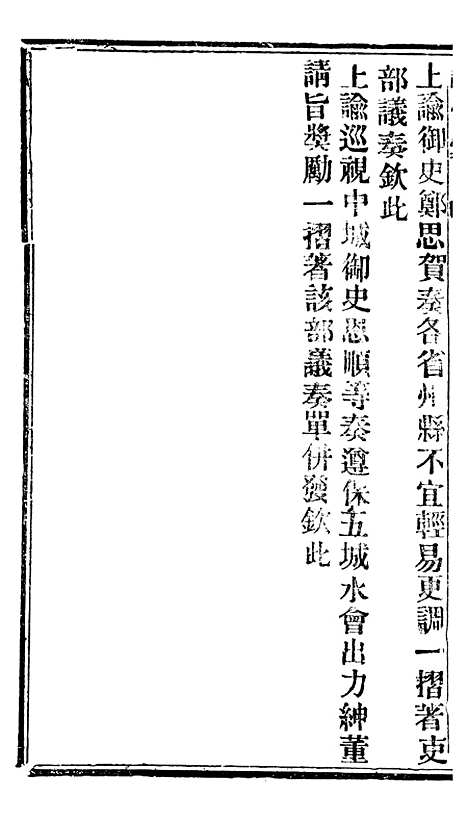 上諭御史鄭思賀奏各省州縣不宜輕易更調一摺著吏
部議奏欽此
上諭巡視中城御史恩順等奏遵保五城水會出力紳董
請旨獎勵一摺著該部議奏單併發欽此